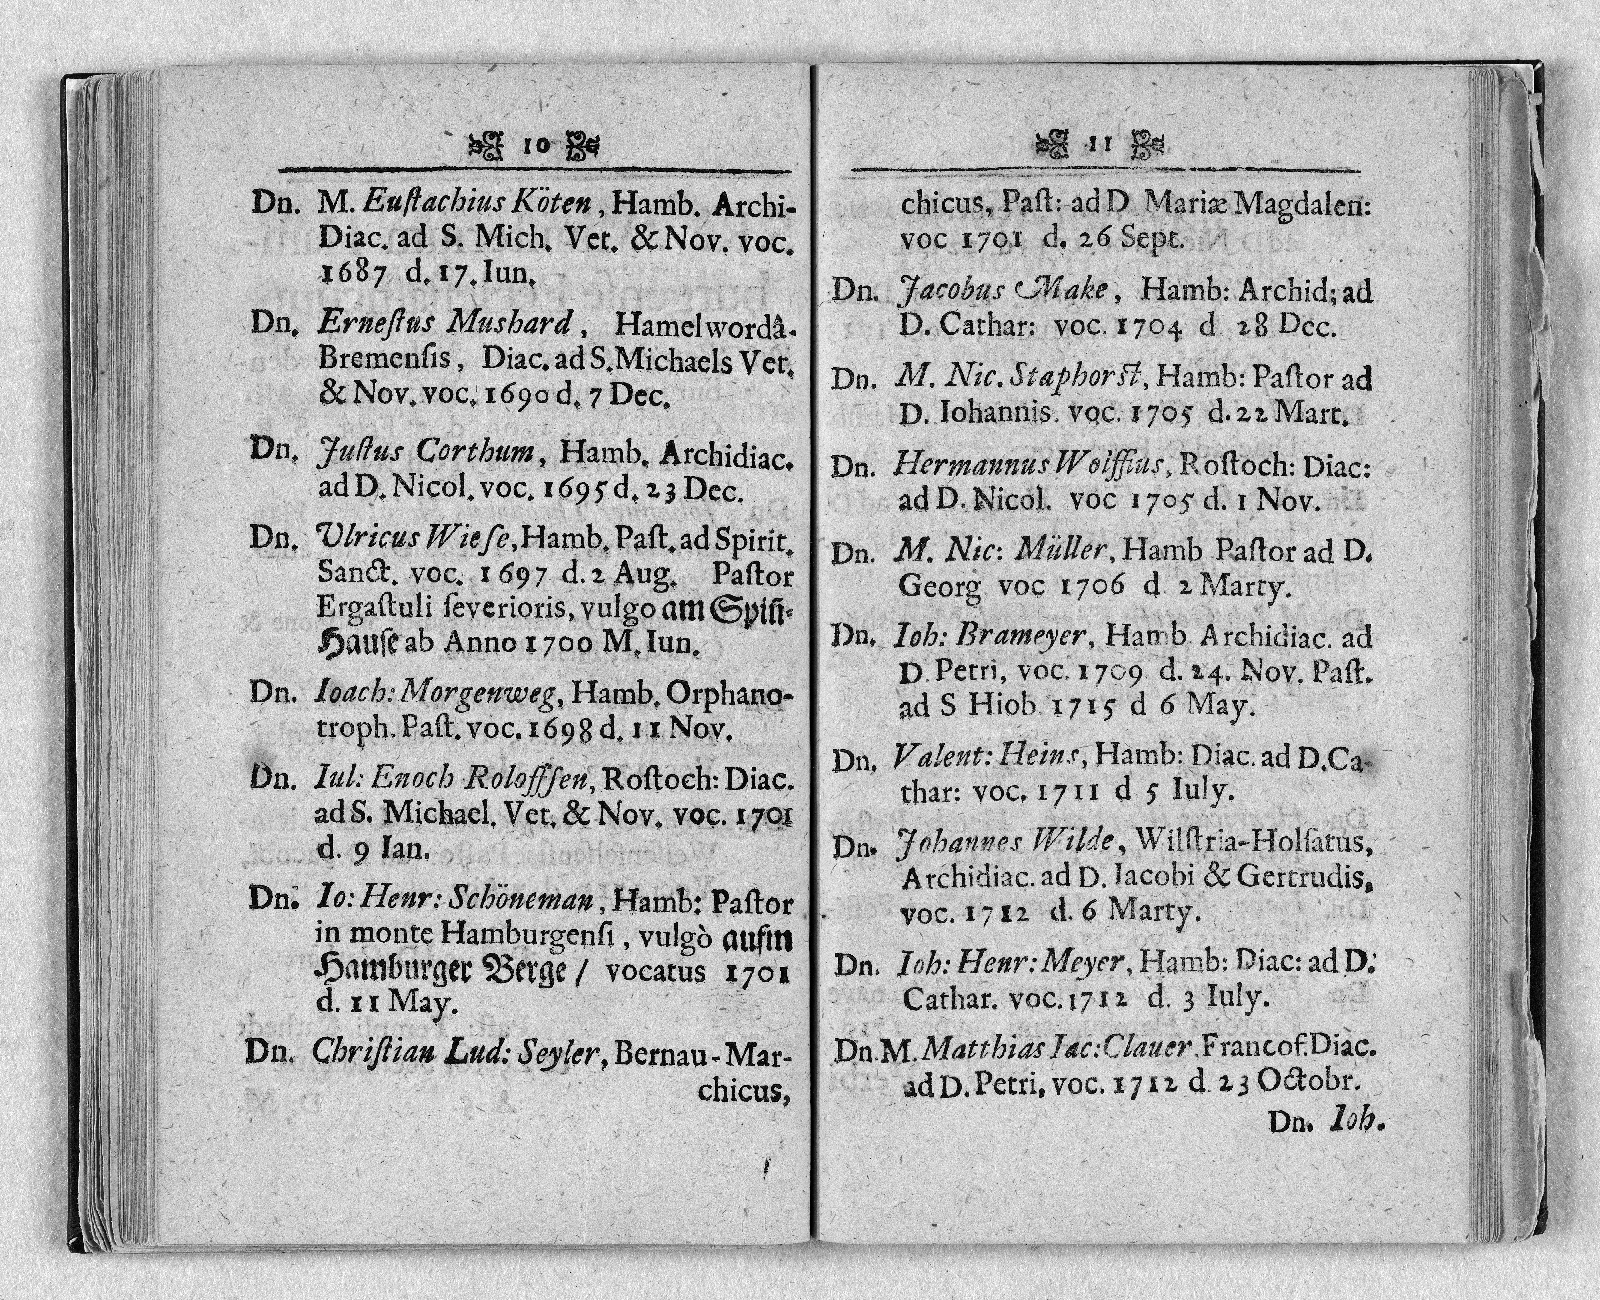 10
Dn. M. Euſtachius Köten, Hamb. Archi-
Diac. ad S. Mich. Vet. & Nov. voc.
1687 d. 17. Iun.
Dn. Erneſtus Mushard, Hamelwordâ-
Bremenſis, Diac. ad S. Michaels Vet.
& Nov. voc. 1690 d. 7 Dec.
Dn. Juſtus Corthum, Hamb. Archidiac.
ad D. Nicol. voc. 1695 d. 23 Dec.
Dn. Vlricus Wieſe, Hamb. Paſt. ad Spirit.
Sanct. voc. 1697 d. 2 Aug. Paſtor
Ergaſtuli ſeverioris, vulgo am Spiñ-
Hauſe ab Anno 1700 M. Iun.
Dn. Ioach: Morgenweg, Hamb. Orphano-
troph. Paſt. voc. 1698 d. 11 Nov.
Dn. Iul: Enoch Roloffſen, Roſtoch: Diac.
ad S. Michael. Vet. & Nov. voc. 1701
d. 9 Ian.
Dn. Io: Henr: Schöneman, Hamb: Paſtor
in monte Hamburgenſi, vulgò aufm
Hamburger Berge / vocatus 1701
d. 11 May.
Dn. Chriſtian Lud: Seyler, Bernau-Mar-
chicus,
11
chicus, Paſt: ad D Mariæ Magdalen:
voc 1701 d. 26 Sept.
Dn. Jacobus Make, Hamb: Archid; ad
D. Cathar: voc. 1704 d 28 Dec.
Dn. M. Nic. Staphorſt, Hamb: Paſtor ad
D. Iohannis. voc. 1705 d. 22 Mart.
Dn. Hermannus Wolffius, Roſtoch: Diac:
ad D. Nicol. voc 1705 d. 1 Nov.
Dn. M. Nic: Müller, Hamb Paſtor ad D.
Georg voc 1706 d 2 Marty.
Dn. Ioh: Brameyer, Hamb Archidiac. ad
D. Petri, voc. 1709 d. 24. Nov. Paſt.
ad S Hiob 1715 d 6 May.
Dn. Valent: Heins, Hamb: Diac. ad D. Ca-
thar: voc. 1711 d 5 Iuly.
Dn. Johannes Wilde, Wilſtria-Holſatus,
Archidiac. ad D. Iacobi & Gertrudis,
voc. 1712 d. 6 Marty.
Dn. Ioh: Henr: Meyer, Hamb: Diac: ad D.
Cathar. voc. 1712 d. 3 Iuly.
Dn. M. Matthias Iac: Clauer. Francof. Diac.
ad D. Petri, voc. 1712 d 23 Octobr.
Dn. Ioh.